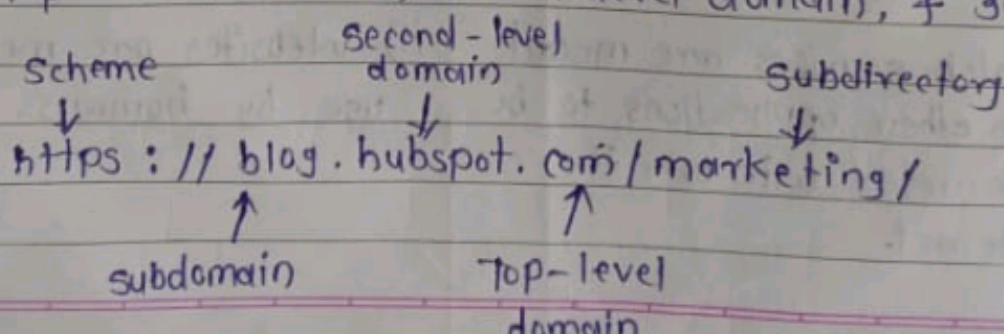 domain, + g
second-level
Scheme domain Subdirectory
https://blog.hubspot.com/marketing/
subdomain Top-level
domain